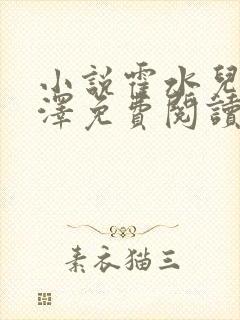 小說霍水兒
澤免費閱讀
素衣猫三